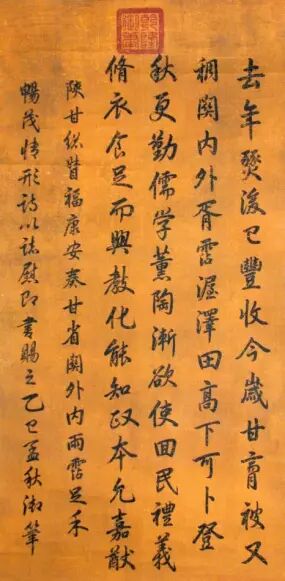 去年燹後已豐收今歲甘膏被又
稠關内外胥霑渥澤田高下可卜登
秋更勤儒学薰陶漸欲使囬民禮義
脩衣食足而興教化能知政本允嘉猷
陝甘總督福康安奏甘省關外内雨霑足禾
暢茂情形詩以誌慰即書賜之乙巳孟秋御筆